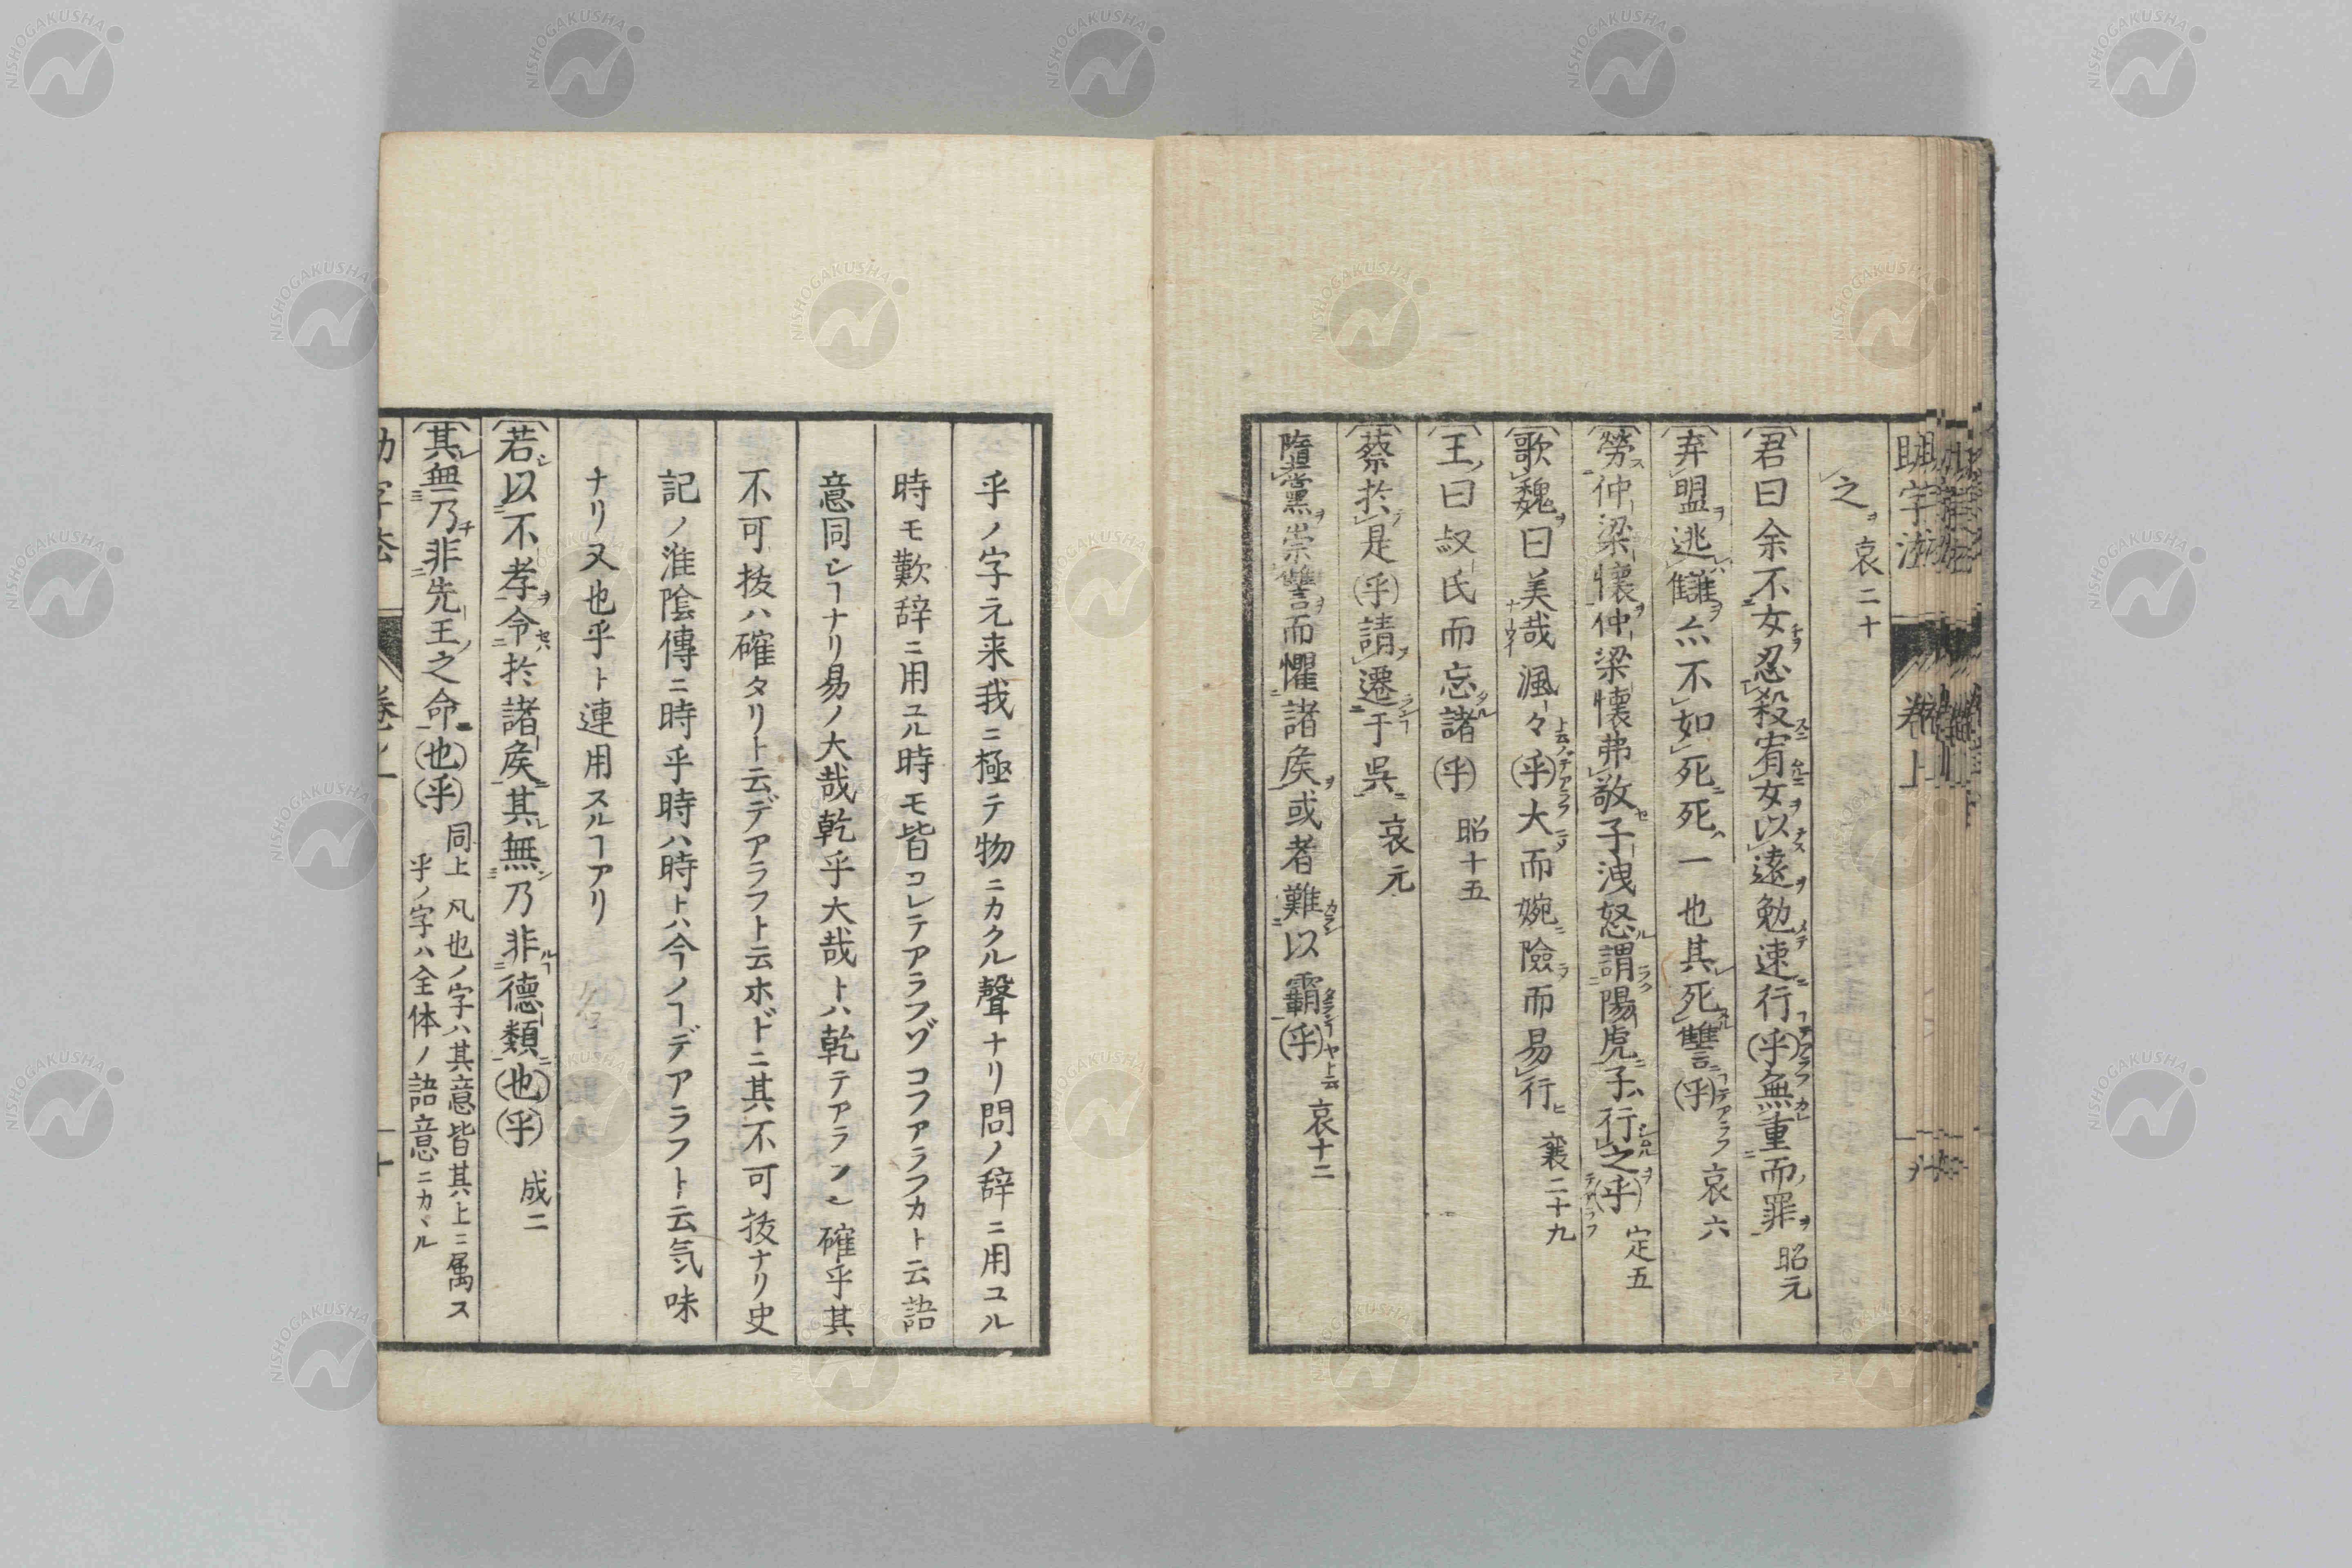 之 哀二十
君曰余不女忍殺宥女以遠勉速行乎無重而罪 昭元
弃盟逃讎亦不如死死一也其死讐乎 哀六
勞仲梁懷仲梁懷弗敬子洩怒謂陽虎子行之乎 定五
歌魏曰美哉渢々乎大而婉險而易行 襄二十九
王曰叔氏而忘諸乎 昭十五
蔡於是乎請遷于吳 哀元
隋黨崇讐而懼諸矦或者難以霸乎 哀十二
乎ノ字元来我ニ極テ物ニカクル聲ナリ問ノ辞ニ用ユル
時モ歎辞ニ用ユル時モ皆コレテアラフゾコフアラフカト云語
意同シヿナリ易ノ大哉乾乎大哉トハ乾テアラフ〜確乎其
不可抜ハ確タリト云デアラフト云ホドニ其不可抜ナリ史
記ノ淮陰傳ニ時乎時ハ時トハ今ノヿデアラフト云気味
ナリ又也乎ト連用スルヿアリ
若以不孝令於諸矦其無乃非德類也乎 成二
其無乃非先王之命也乎 同上 凡也ノ字ハ其意皆其上ニ属ス
乎ノ字ハ全体ノ語意ニカヽル
NISHOGAKUSHA